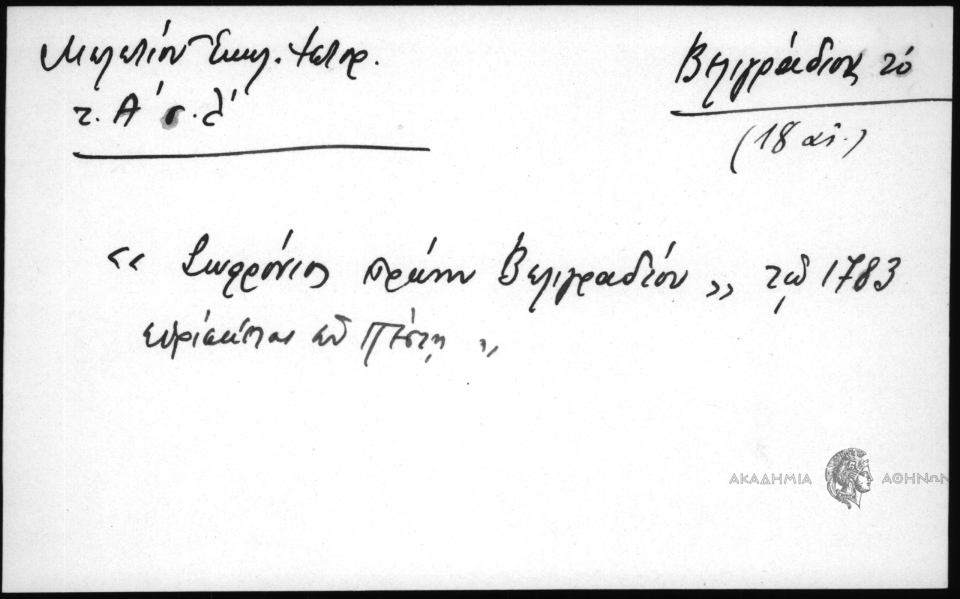 Μελετίου Ἐκκλ. Ἱστορ.
τ. Α' σ. λ'
Βελιγράδιον τό
(18 αἰ.)
“ Σωφρόνιος πρώην Βελιγραδίου ” τῷ 1783
εὑρίσκεται ἐν Πέστῃ ”
ΑΚΑΔΗΜΙΑ ΑΘΗΝΩΝ